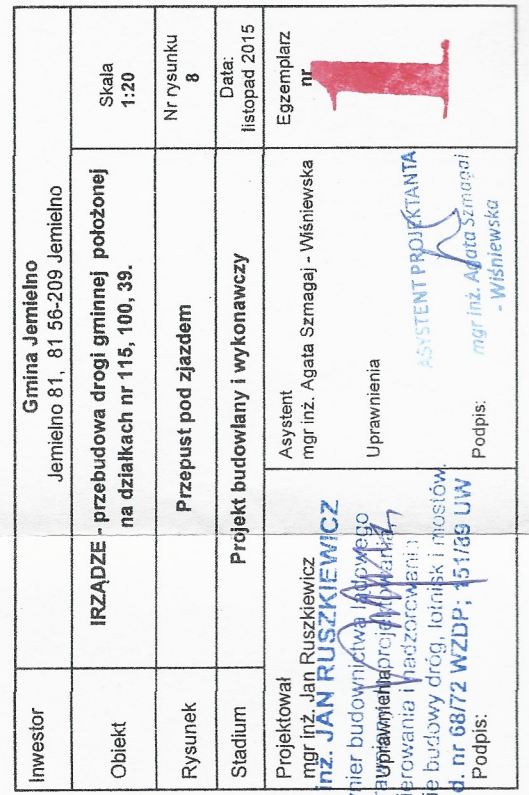 Inwestor
Gmina Jemielno
Jemielno 81, 81 56-209 Jemielno
Obiekt
IRZĄDZE - przebudowa drogi gminnej położonej
na działkach nr 115, 100, 39.
Skala
1:20
Rysunek
Przepust pod zjazdem
Nr rysunku
8
Stadium
Projekt budowlany i wykonawczy
Data:
listopad 2015
Projektował
mgr inż. Jan Ruszkiewicz
inż. JAN RUSZKIEWICZ
budownictwa lądowego
Uprawnienia
projektowania,
ierowania i nadzorowania
ie budowy dróg, lotnisk i mostów.
d. nr 68/72 WZDP; 151/89 UW
Podpis:
Asystent
mgr inż. Agata Szmagaj - Wiśniewska
Uprawnienia
ASYSTENT PROJEKTANTA
mgr inż. Agata Szmagaj
- Wiśniewska
Podpis:
Egzemplarz
nr
1